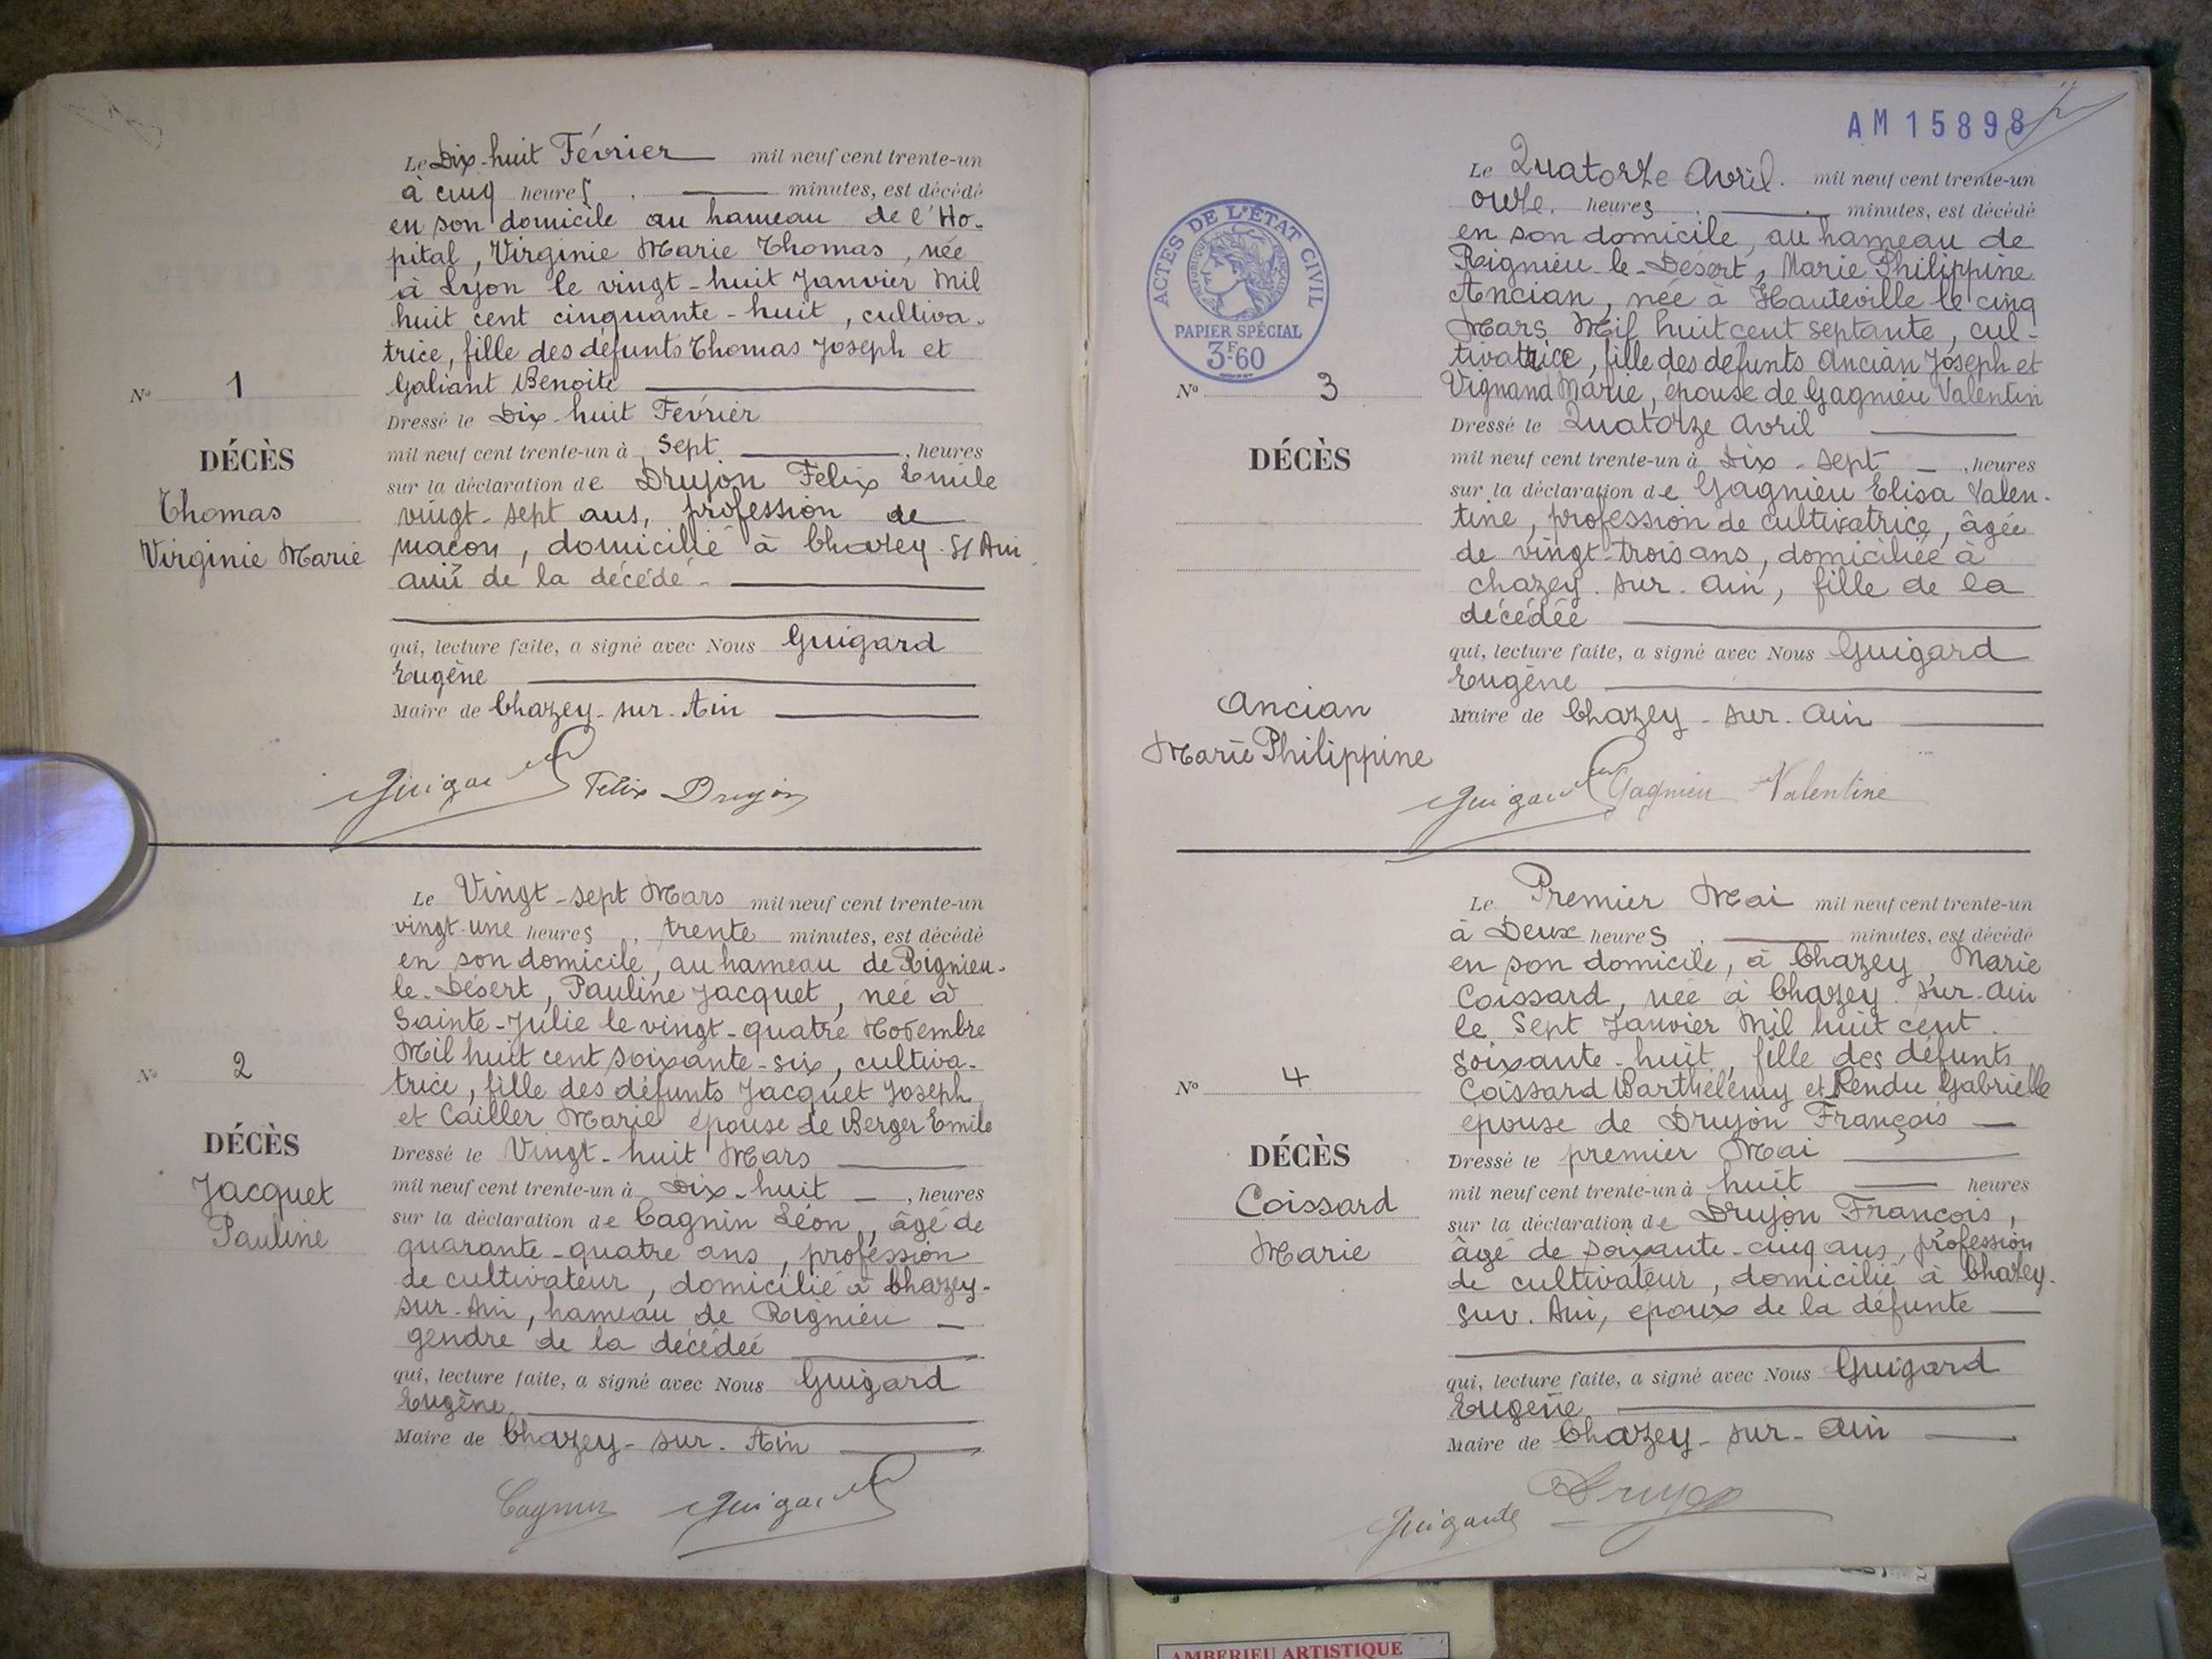 Le Dix-huit Février mil neuf cent trente-un
à cinq heures, minutes, est décédé
en son domicile au hameau de l'Ho-
pital, Virginie Marie Thomas, née
à Lyon le vingt-huit Janvier Mil
huit cent cinquante-huit, cultiva-
trice, fille des défunts Thomas Joseph et
Galiant Benoite
Dressé le Dix-huit Février
mil neuf cent trente-un à Sept, heures
sur la déclaration de Drujon Felix Emile
vingt-sept ans, profession de
maçon, domicilié à Chazey-S/Ain
ami de la décédé-
qui, lecture faite, a signé avec Nous Guigard
Eugène
Maire de Chazey-sur-Ain
Guigard Felix Drujon
N° 1
DÉCÈS
Thomas
Virginie Marie
Le Vingt-sept Mars mil neuf cent trente-un
vingt-une heures, trente minutes, est décédé
en son domicile, au hameau de Rignieu-
le-Désert, Pauline Jacquet, née à
Sainte-Julie le vingt-quatre Novembre
Mil huit cent soixante-six, cultiva-
trice, fille des défunts Jacquet Joseph
et Cailler Marie épouse de Berger Emile
Dressé le Vingt-huit Mars
mil neuf cent trente-un à Dix-huit, heures
sur la déclaration de Cagnin Léon, âgé de
quarante-quatre ans, profession
de cultivateur, domicilié à Chazey-
sur-Ain, hameau de Rignieu
gendre de la décédée
qui, lecture faite, a signé avec Nous Guigard
Eugène
Maire de Chazey-sur-Ain
Cagnin Guigard
N° 2
DÉCÈS
Jacquet
Pauline
AM 15898
ACTES DE L'ÉTAT CIVIL
RÉPUBLIQUE FRANÇAISE
PAPIER SPÉCIAL
3F60
Le Quatorze Avril. mil neuf cent trente-un
onze. heures, minutes, est décédé
en son domicile, au hameau de
Reignieu-le-Désert, Marie Philippine
Ancian, née à Hauteville le cinq
Mars Mil huit cent septante, cul-
tivatrice, fille des defunts Ancian Joseph et
Vignand Marie, épouse de Gagnieu Valentin
Dressé le Quatorze Avril
mil neuf cent trente-un à Dix-sept, heures
sur la déclaration de Gagnieu Elisa Valen-
tine, profession de cultivatrice, âgée
de vingt-trois ans, domiciliée à
Chazey-sur-Ain, fille de la
décédée
qui, lecture faite, a signé avec Nous Guigard
Eugène
Maire de Chazey-sur-Ain
Guigard Gagnieu Valentine
N° 3
DÉCÈS
Ancian
Marie Philippine
Le Premier Mai mil neuf cent trente-un
à Deux heures, minutes, est décédé
en son domicile, à Chazey, Marie
Coissard, née à Chazey-sur-Ain
le Sept Janvier Mil huit cent
soixante-huit, fille des défunts
Coissard Barthélémy et Rendu Gabrielle
épouse de Drujon François
Dressé le premier Mai
mil neuf cent trente-un à huit heures
sur la déclaration de Drujon François,
âgé de soixante-cinq ans, profession
de cultivateur, domicilié à Chazey-
sur-Ain, époux de la défunte
qui, lecture faite, a signé avec Nous Guigard
Eugène
Maire de Chazey-sur-Ain
Guigard Drujon
N° 4
DÉCÈS
Coissard
Marie
AMBERIEU ARTISTIQUE